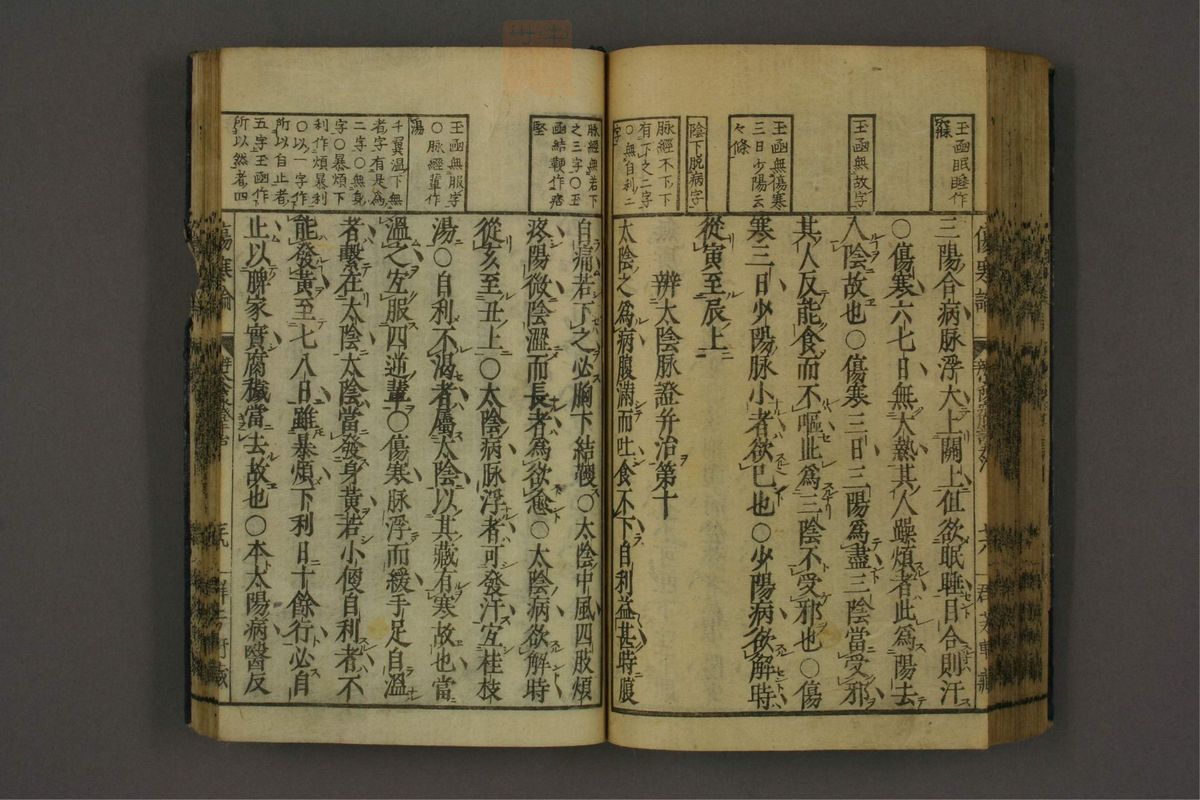 玉函眠睡作
寐
玉函無故字
玉函無傷寒
三日少陽云
々條
陰下脫病字
脉經不下下
有下之二字
○無自利二
字
三陽合病脉浮大上關上但欲眠睡目合則汗
○傷寒六七日無大熱其人躁煩者此爲陽去
入陰故也○傷寒三日三陽爲盡三陰當受邪
其人反能食而不嘔此爲三陰不受邪也○傷
寒三日少陽脉小者欲已也○少陽病欲解時
從寅至辰上
辨太陰脉證并治第十
太陰之爲病腹滿而吐食不下自利益甚時腹
脉經無若下
之三字○玉
函結鞕作痞
堅
玉函無服字
○脉經輩作
湯
千翼溫下無
者字有是爲
二字○無身
字○暴煩下
利作煩暴利
○以一字作
所以自止者
五字玉函作
所以然者四
自痛若下之必胸下結鞕○太陰中風四肢煩
疼陽微陰濇而長者爲欲愈○太陰病欲解時
從亥至丑上○太陰病脉浮者可發汗宐桂枝
湯○自利不渴者屬太陰以其藏有寒故也當
溫之宐服四逆輩○傷寒脉浮而緩手足自溫
者繫在太陰太陰當發身黃若小便自利者不
能發黃至七八日雖暴煩下利日十餘行必自
止以脾家實腐穢當去故也○本太陽病醫反
傷寒論